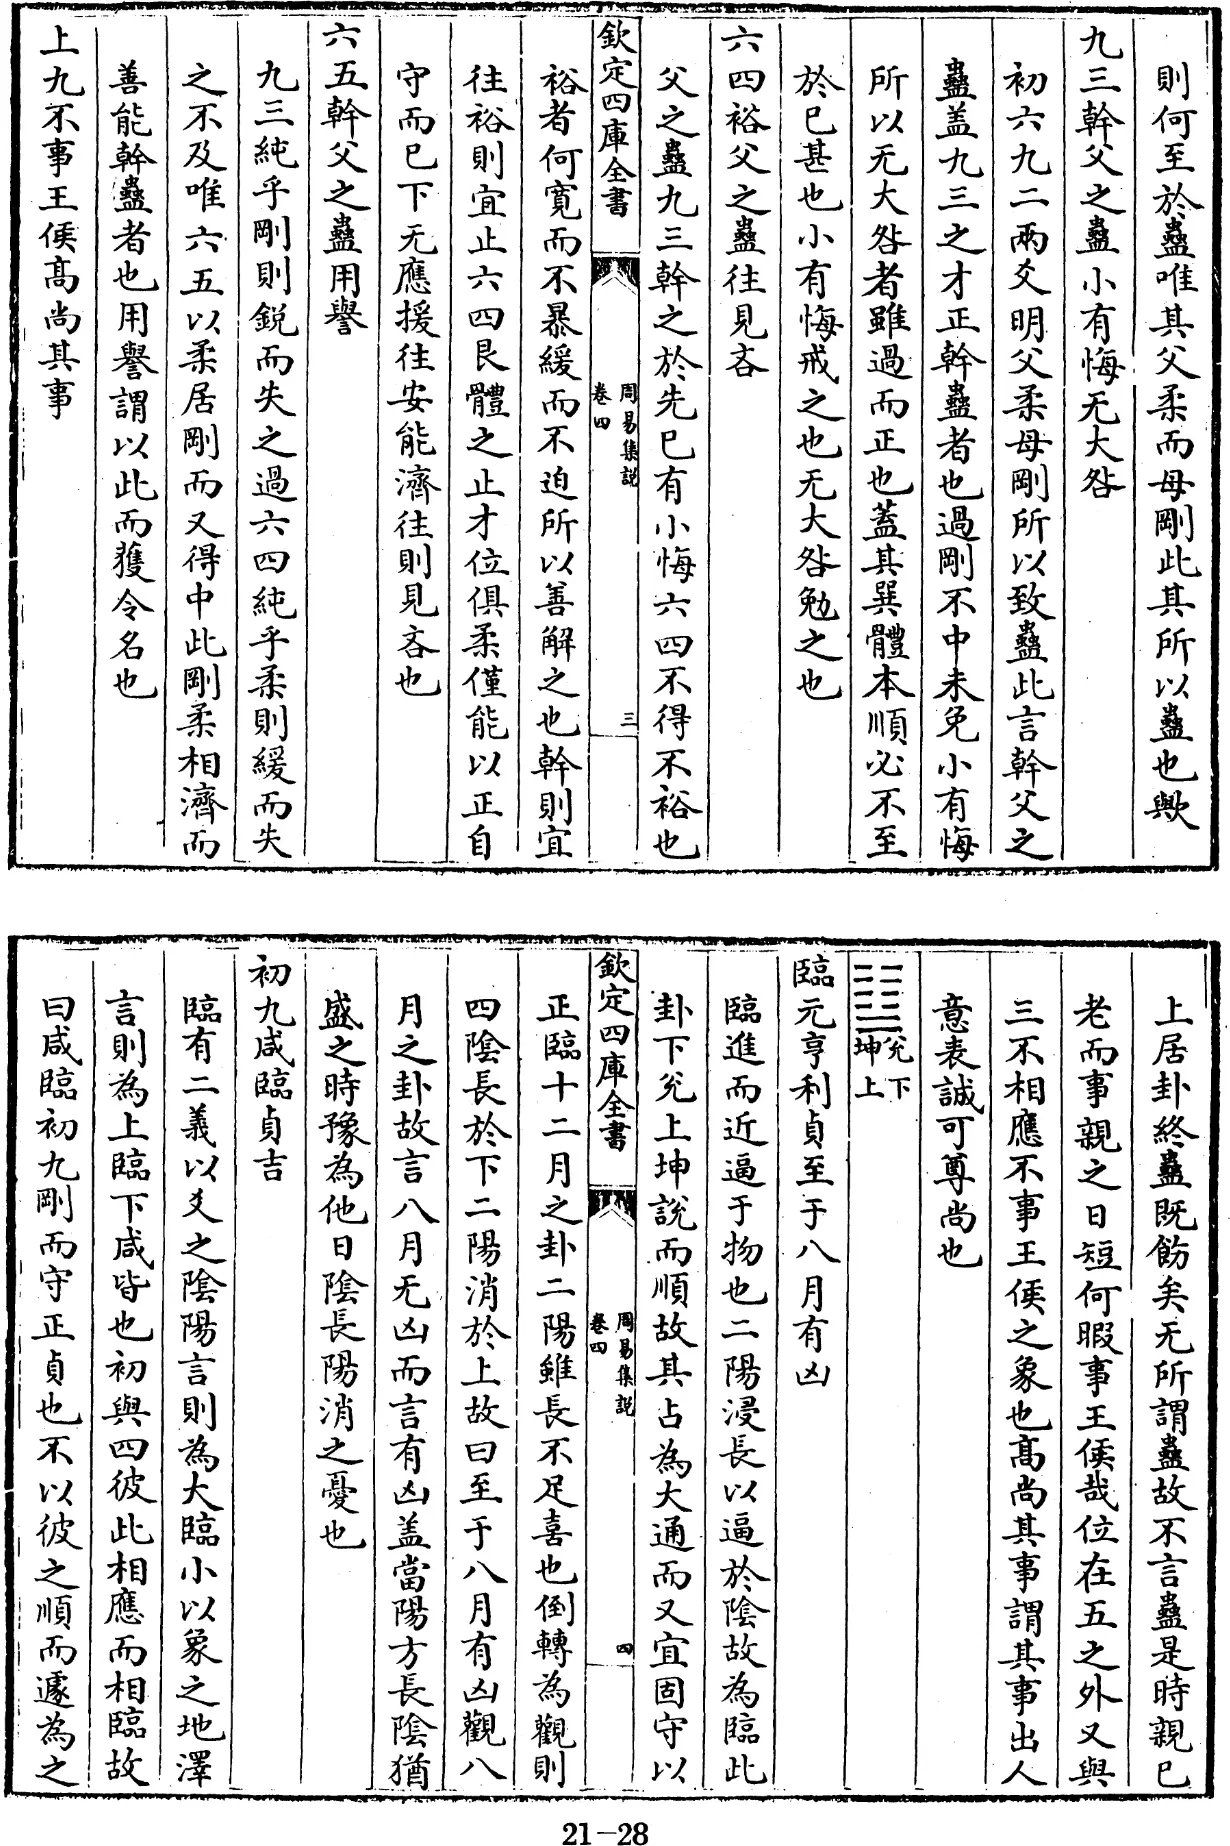 則何至於蠱唯其父柔而母剛此其所以蠱也歟
九三幹父之蠱小有悔无大咎
初六九二兩爻明父柔母剛所以致蠱此言幹父之
蠱盖九三之才正幹蠱者也過剛不中未免小有悔
所以无大咎者雖過而正也蓋其巽體本順必不至
於已甚也小有悔戒之也无大咎勉之也
六四裕父之蠱往見吝
父之蠱九三幹之於先已有小悔六四不得不裕也
欽定四庫全書
周易集說
卷四
三
裕者何寛而不暴緩而不迫所以善解之也幹則宜
往裕則宜止六四艮體之止才位俱柔僅能以正自
守而已下无應援往安能濟往則見吝也
六五幹父之蠱用譽
九三純乎剛則鋭而失之過六四純乎柔則緩而失
之不及唯六五以柔居剛而又得中此剛柔相濟而
善能幹蠱者也用譽謂以此而獲令名也
上九不事王侯髙尚其事
上居卦終蠱既飭矣无所謂蠱故不言蠱是時親已
老而事親之日短何暇事王侯哉位在五之外又與
三不相應不事王侯之象也髙尚其事謂其事出人
意表誠可尊尚也
䷒兌下坤上
臨元亨利貞至于八月有凶
臨進而近逼于物也二陽浸長以逼於陰故為臨此
卦下兌上坤說而順故其占為大通而又宜固守以
欽定四庫全書
周易集說
卷四
四
正臨十二月之卦二陽雖長不足喜也倒轉為觀則
四陰長於下二陽消於上故曰至于八月有凶觀八
月之卦故言八月无凶而言有凶盖當陽方長陰猶
盛之時豫為他日陰長陽消之憂也
初九咸臨貞吉
臨有二義以爻之陰陽言則為大臨小以象之地澤
言則為上臨下咸皆也初與四彼此相應而相臨故
曰咸臨初九剛而守正貞也不以彼之順而遽為之
21-28